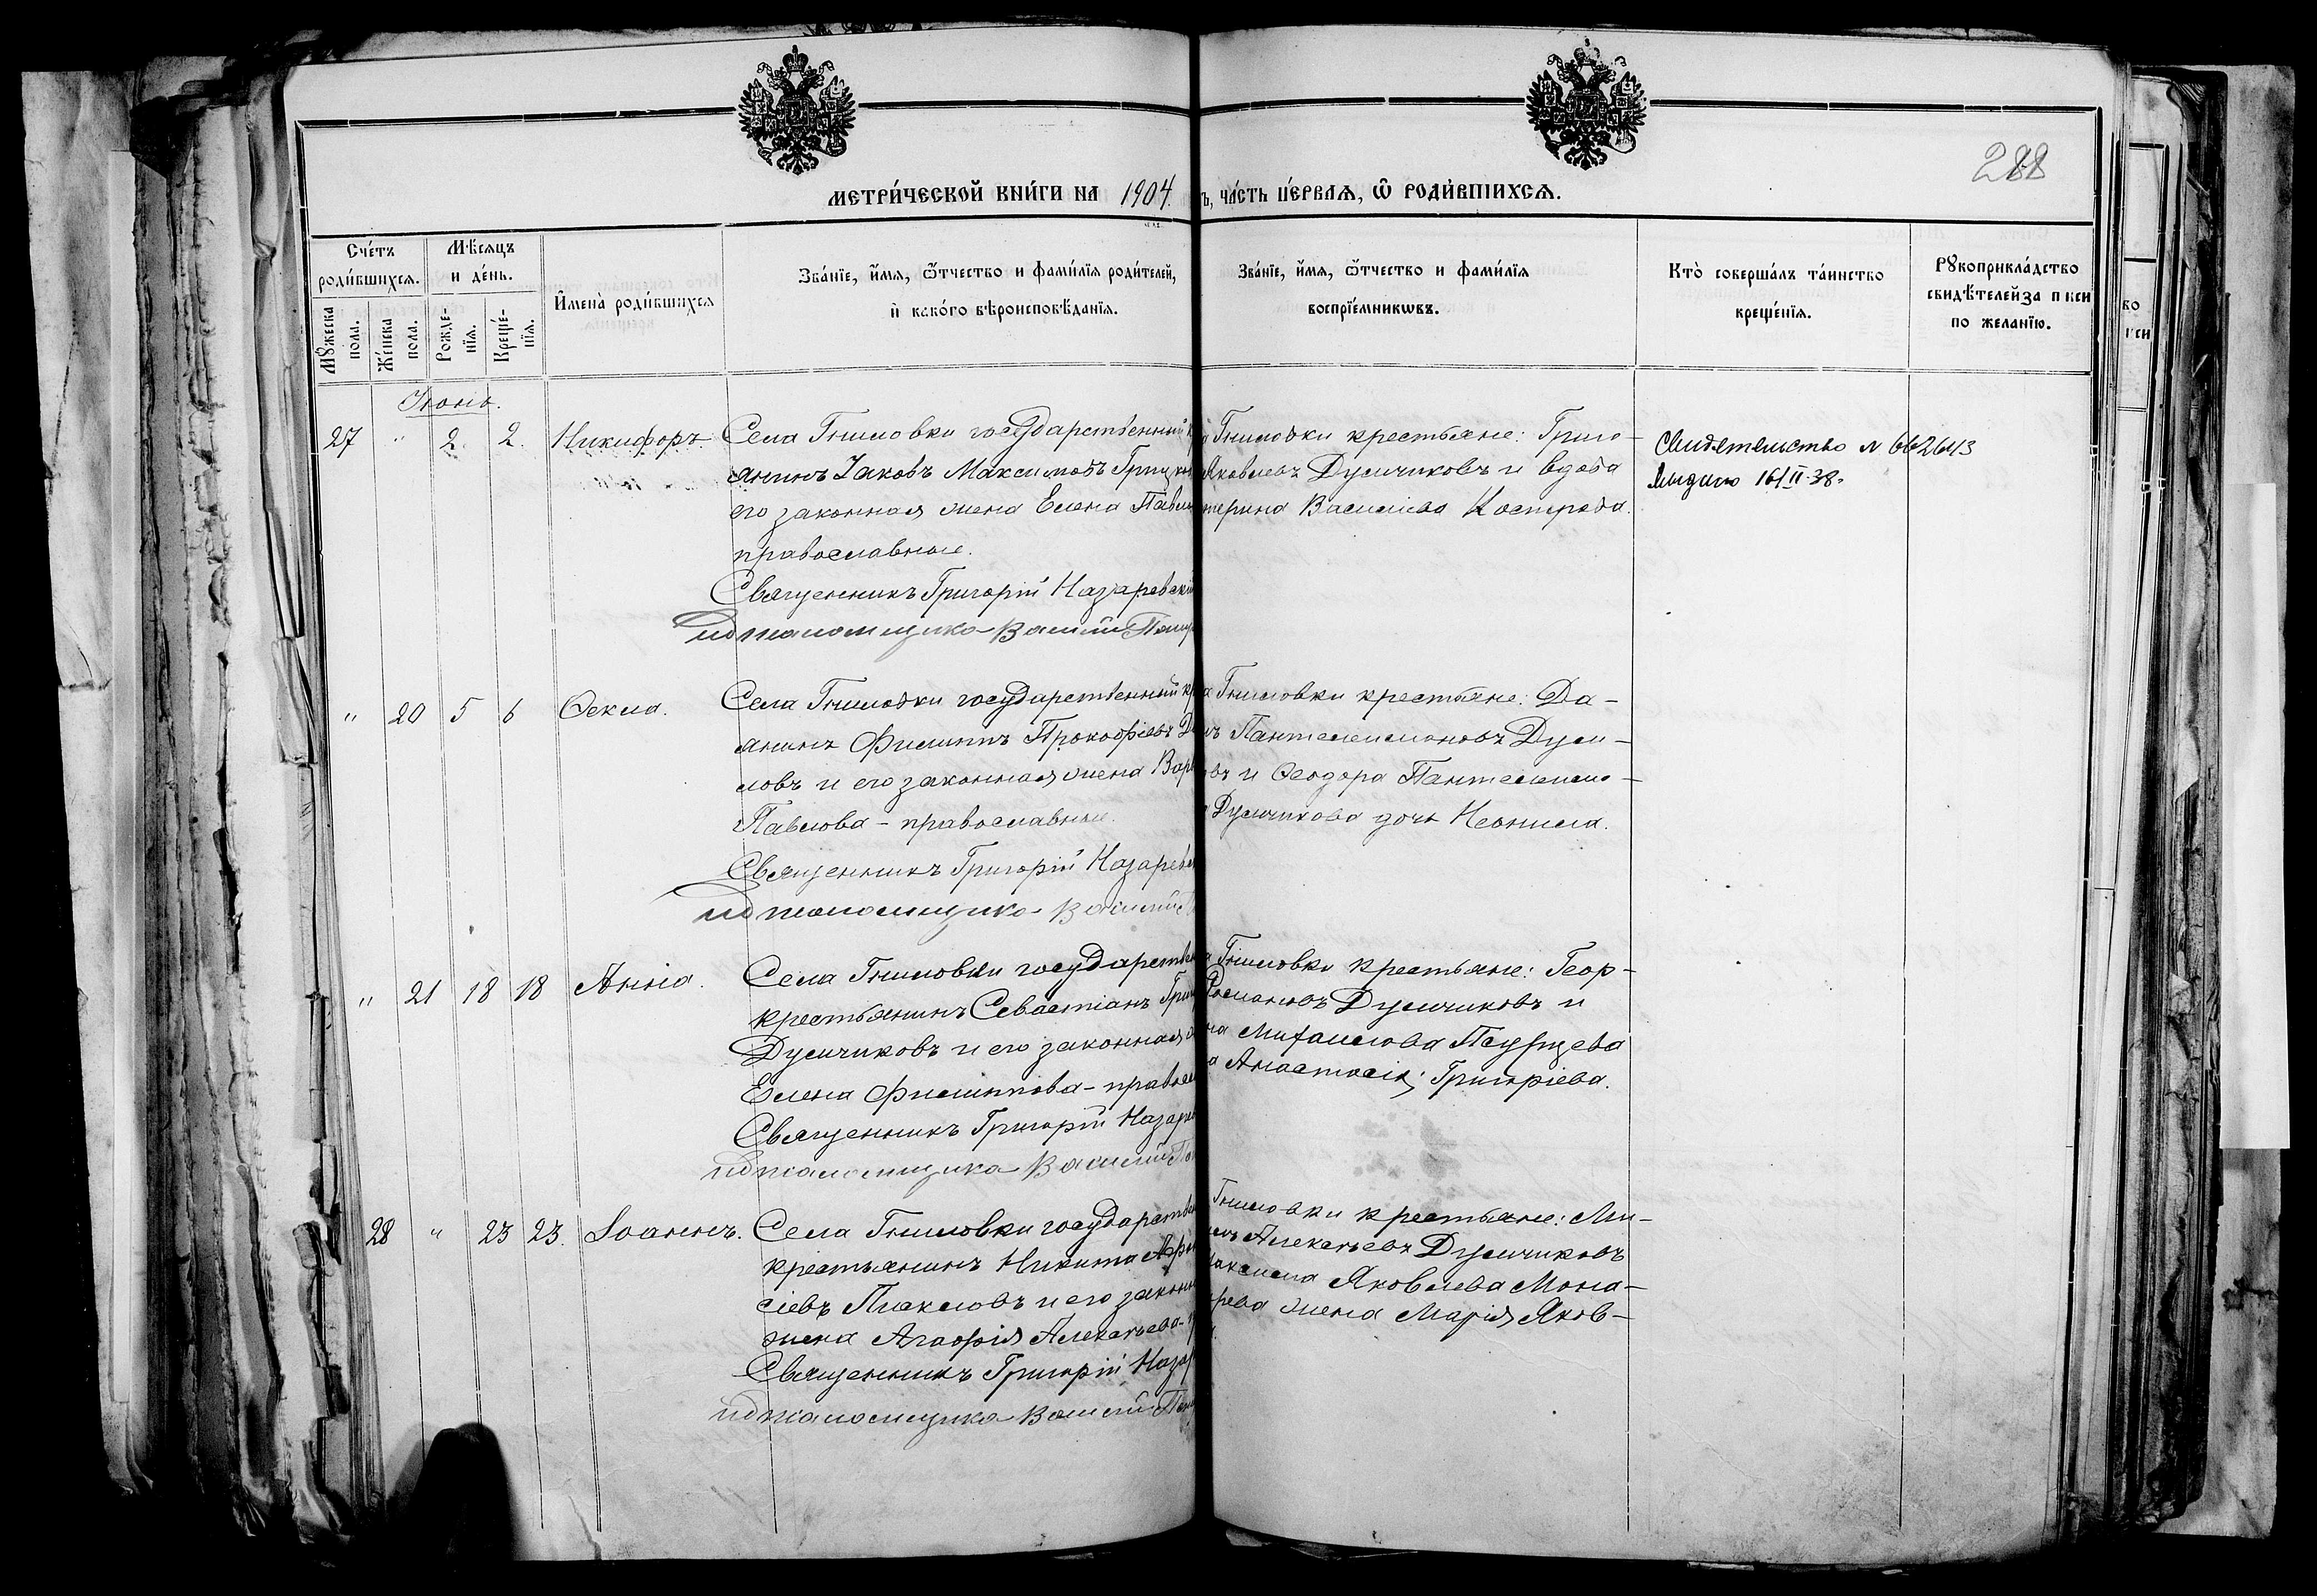 288
МЕТРИ́ЧЕСКОЙ КНИ́ГИ НА 1904. ЧА́СТЬ ПЕ́РВАѦ, Ѿ РОДИ́ВШИХСѦ.
Сче́тъ роди́вшихсѧ.
Мѣ́сѧцъ и де́нь.
Мꙋ́жеска пола.
Же́нска пола.
Рожде-нїѧ.
Креще́-нїѧ.
И҆мена̀ роди́вшихсѧ
Зва́нїе, и҆́мѧ, ѻ҆́тчество и фами́лїѧ роди́телей,
и҆ како́го вѣроисповѣ́данїѧ.
Зва́нїе, и҆́мѧ, ѻ҆́тчество и фами́лїѧ
воспрїе́мникѡвъ.
Кто̀ соверша́лъ та́инство
креще́нїѧ.
Рꙋкоприкла́дство
свидѣ́телей за п иси
по жела́нїю.
Іюнь.
27 " 2 2. Никифоръ.
Села Гниловки государственный
янинъ Іаковъ Максимовъ
его законная жена Елена
православные.
Священникъ Григорій Назаревскій
Псаломщикъ Василій
Гниловки крестьяне: Григо-
Яковлевъ Думчиковъ и вдова
Василіева Кострова.
Свидетельство N 662643
Выдано 16/II-38.
" 20 5 6 Ѳекла.
Села Гниловки государственный
янинъ Филиппъ Прокофіевъ
ловъ и его законная жена
Павлова - православные.
Священникъ Григорій
Псаломщикъ Василій
Гниловки крестьяне: Да-
Пантелеимоновъ Думчи-
и Ѳеодора Пантелеимо-
Думчикова дочь Неонила.
" 21 18 18 Анна.
Села Гниловки
крестьянинъ Севастіанъ
Думчиковъ и его законная
Елена Филиппова -
Священникъ Григорій
Псаломщикъ Василій
Гниловки крестьяне: Геор-
Романовъ Думчиковъ и
Михаилова
Анастасія Григоріева.
28 " 23 23. Іоаннъ.
Села Гниловки
крестьянинъ Никита
сіевъ и его
жена Агафія Алексѣева-
Священникъ Григорій
Псаломщикъ Василій
Гниловки крестьяне: Ми-
Алексѣевъ Думчиковъ
Яковлева Мона-
жена Марія Яков-